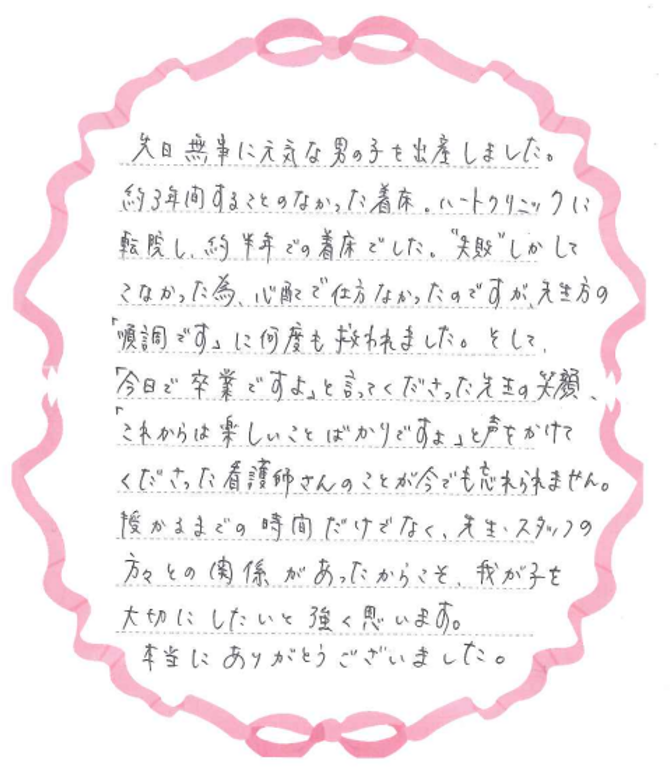 先日無事に元気な男の子を出産しました。
約3年間することのなかった着床。ハートクリニックに
転院し、約半年での着床でした。“失敗”しかして
こなかった為、心配で仕方なかったのですが、先生方の
「順調です」に何度も救われました。そして、
「今日で卒業ですよ」と言ってくださった先生の笑顔、
「これからは楽しいことばかりですよ」と声をかけて
くださった看護師さんのことが今でも忘れられません。
授かるまでの時間だけでなく、先生・スタッフの
方々との関係があったからこそ、我が子を
大切にしたいと強く思います。
本当にありがとうございました。